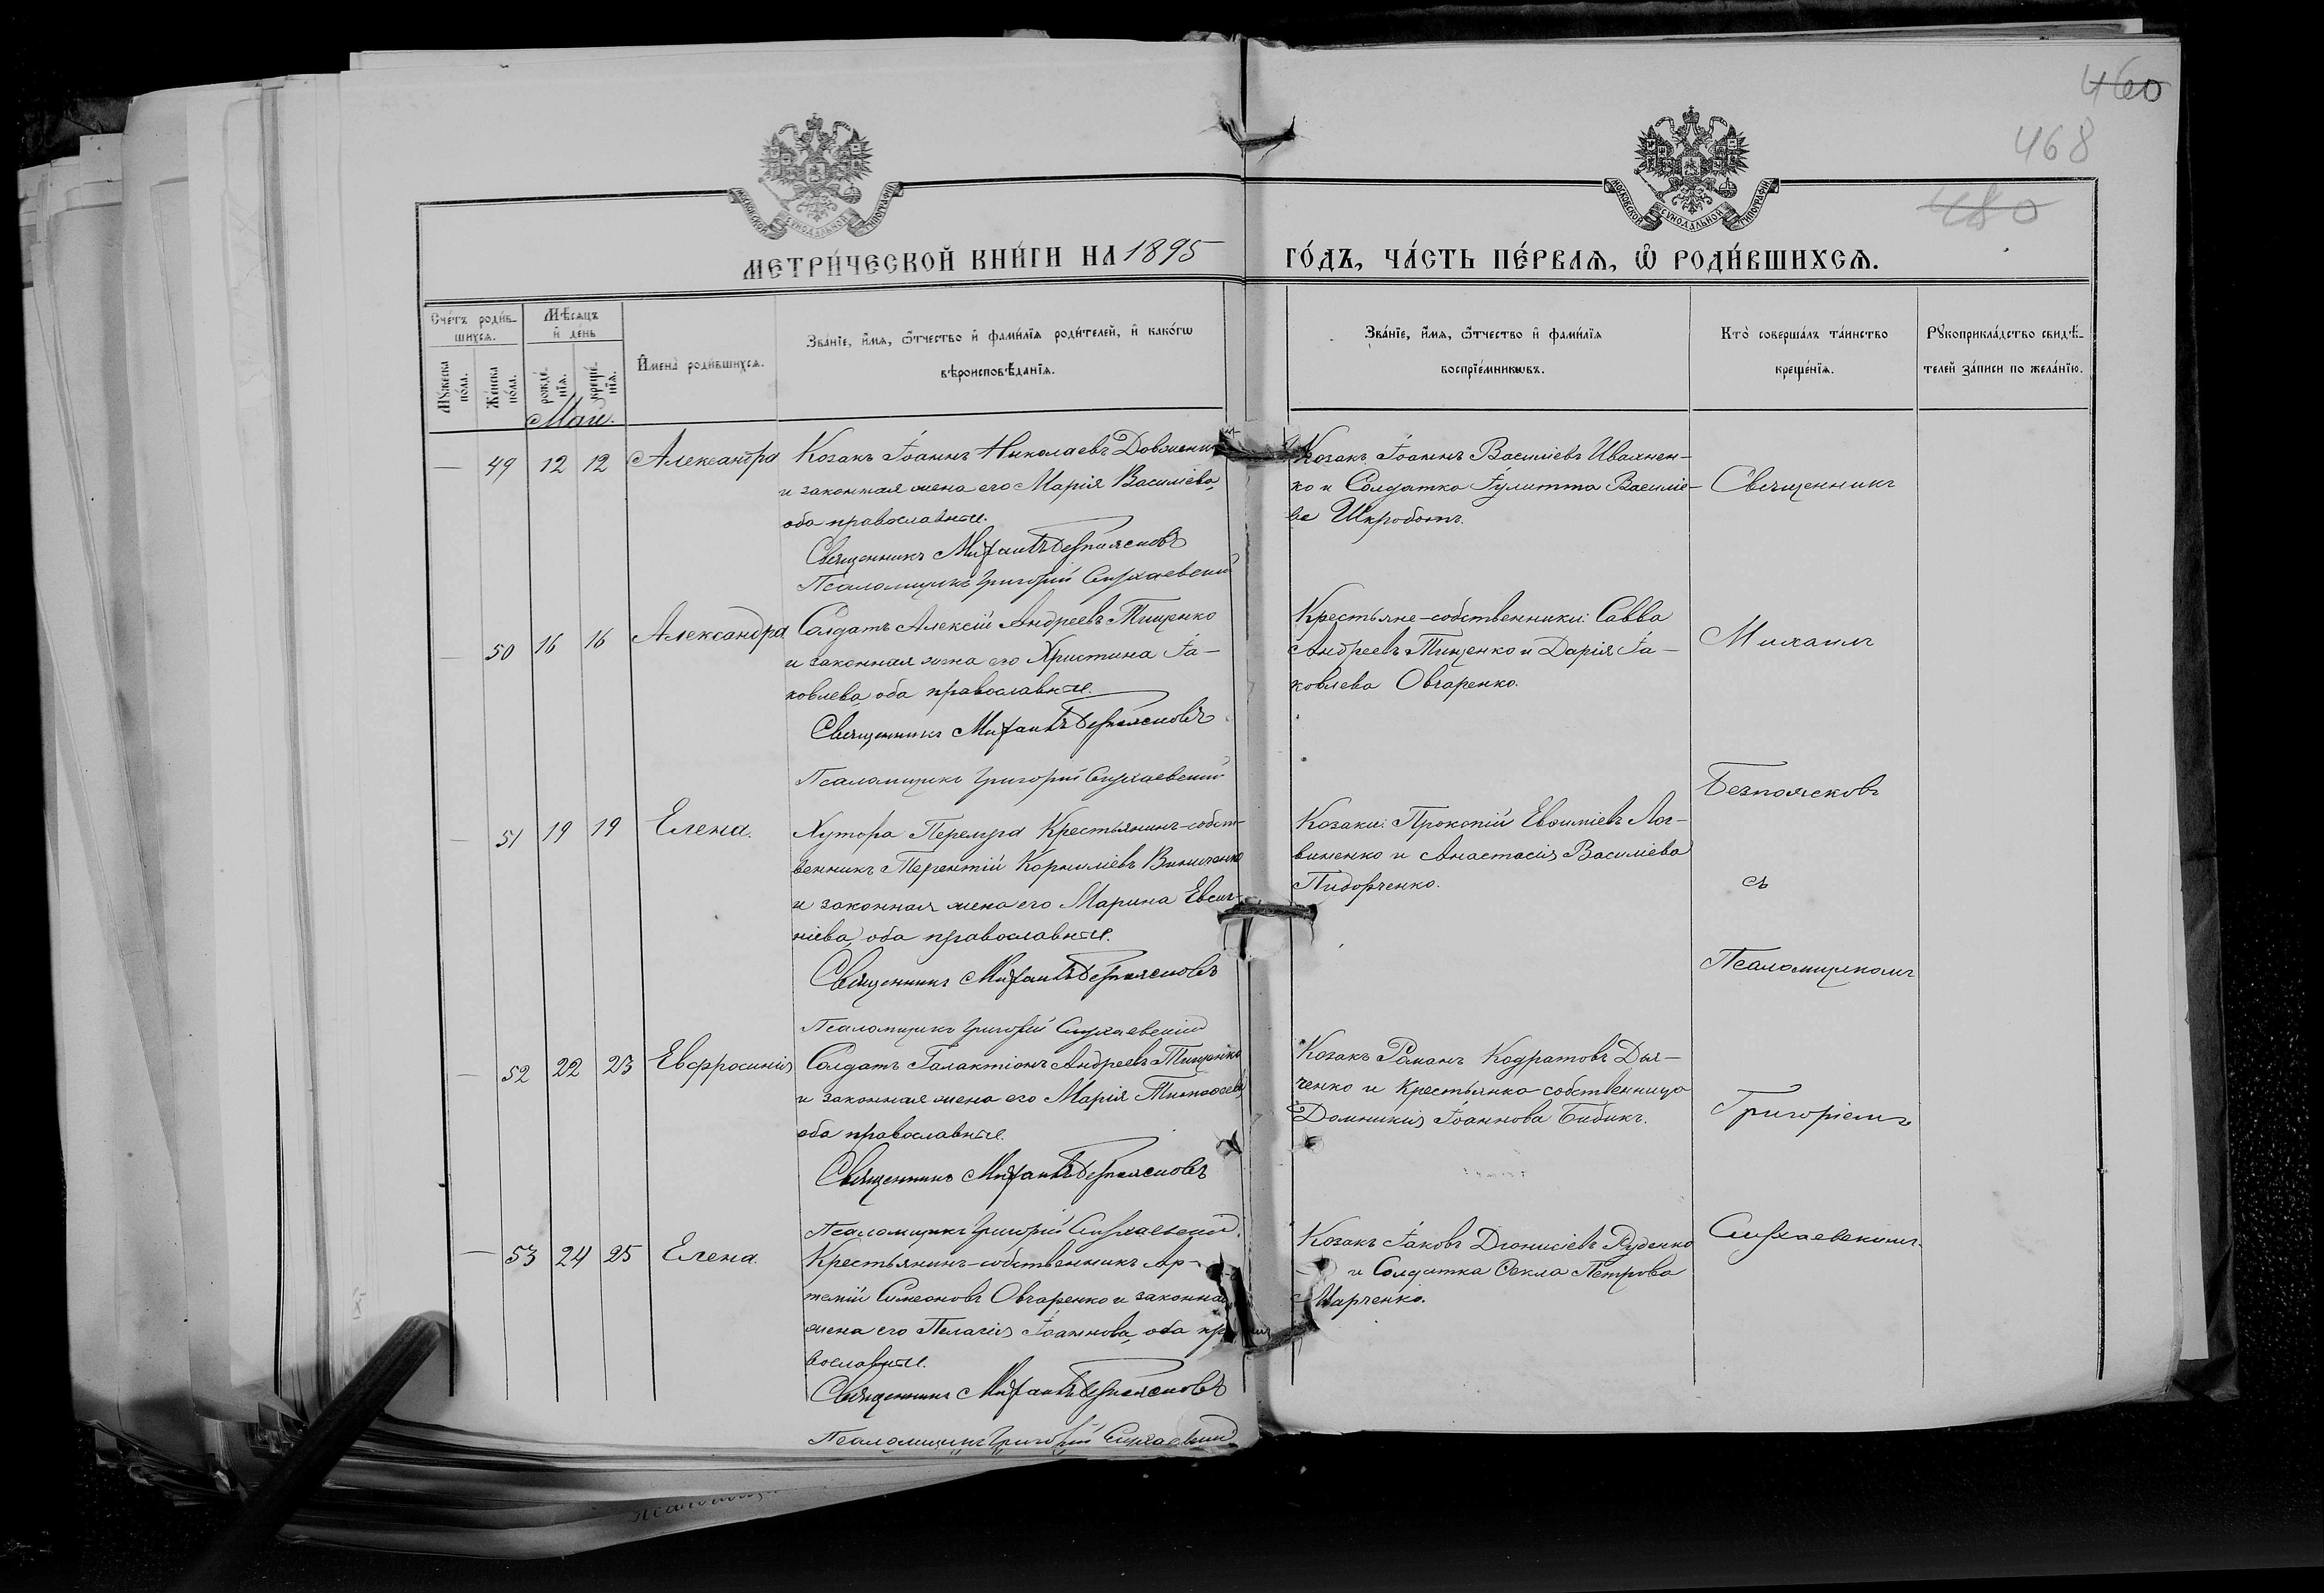 460
468
480
МОСКОВСКОЙ СѴНОДАЛЬНОЙ ТИПОГРАФІИ
МОСКОВСКОЙ СѴНОДАЛЬНОЙ ТИПОГРАФІИ
МЕТРИ́ЧЕСКОЙ КНИ́ГИ НА 1895
ГО́ДЪ, ЧА́СТЬ ПЕ́РВАѦ, Ѡ РОДИ́ВШИХСѦ.
Сче́тъ роди́в-
шихсѧ.
Мꙋ́жеска
по́ла.
Же́нска
по́ла.
Мѣ́сѧцъ
и҆ де́нь
рожде́-
нїѧ.
креще́-
нїѧ.
И҆мена̀ роди́вшихсѧ.
Зва́нїе, и҆́мѧ, ѻ҆́тчество и҆ фами́лїѧ роди́телей, и҆ како́гѡ
вѣроисповѣ́данїѧ.
Зва́нїе, и҆́мѧ, ѻ҆́тчество и҆ фами́лїѧ
воспрїе́мникѡвъ.
Кто̀ соверша́лъ та́инство
креще́нїѧ.
Рꙋкоприкла́дство свидѣ́-
телей за́писи по жела́нїю.
Маи.
— 49 12 12 Александра
Козакъ Іоаннъ Николаевъ Довженко
и законная жена его Марія Василіева,
оба православные.
Священникъ Михаилъ Безпоясковъ
Псаломщикъ Григорій Сирхаевскій
Козакъ Іоаннъ Василіевъ Ивахнен-
ко и Солдатка Іулитта Василіе-
ва Шкроботъ.
Священникъ
— 50 16 16 Александра
Солдатъ Алексій Андреевъ Тищенко
и законная жена его Христина Іа-
ковлева, оба православные.
Священникъ Михаилъ Безпоясковъ
Псаломщикъ Григорій Сирхаевскій
Крестьяне-собственники: Савва
Андреевъ Тищенко и Дарія Іа-
ковлева Овчаренко.
Михаилъ
Безпоясковъ
— 51 19 19 Елена.
Хутора Перелуга Крестьянинъ-собст-
венникъ Терентій Корниліевъ Винниченко
и законная жена его Марина Евсиг-
ніева, оба православные.
Священникъ Михаилъ Безпоясковъ
Псаломщикъ Григорій Сирхаевскій
Козаки: Прокопій Евѳиміевъ Лог-
виненко и Анастасія Василіева
Пидорченко.
съ
Псаломщикомъ
— 52 22 23 Евфросинія
Солдатъ Галактіонъ Андреевъ Тищенко
и законная жена его Марія Тимоѳеева,
оба православные.
Священникъ Михаилъ Безпоясковъ
Псаломщикъ Григорій Сирхаевскій
Козакъ Романъ Кодратовъ Дья-
ченко и Крестьянка-собственница
Домникія Іоаннова Бибикъ.
Григоріемъ
— 53 24 25 Елена.
Крестьянинъ-собственникъ Ар-
темій Симеоновъ Овчаренко и законная
жена его Пелагія Іоаннова, оба пра-
вославные.
Священникъ Михаилъ Безпоясковъ
Псаломщикъ Григорій Сирхаевскій
Козакъ Іаковъ Діонисіевъ Руденко
и Солдатка Ѳекла Петрова
Марченко.
Сирхаевскимъ.